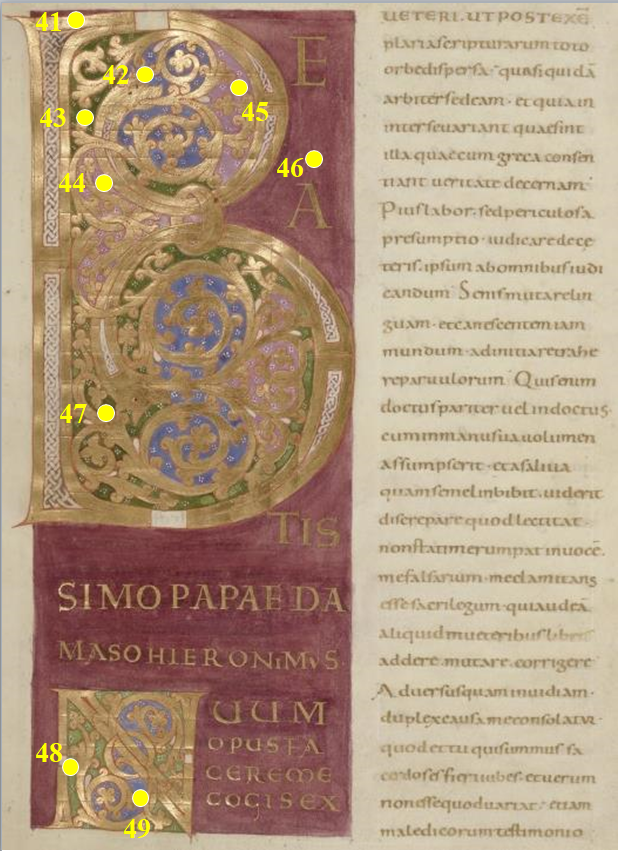 41
42
43
44
45
46
47
B
E
A
TIS
SIMO PAPAE DA
MASO HIERONIMVS·
48
49
N
UUM
OPUS FA
CEREME
COGIS EX
UETERI. UT POST EXĒ
plaria scripturarum toto
orbe dispersa· quasi quidā
arbiter sedeam· et quia in
inter se uariant quae sint
illa quae cum greca consen
tiant ueritate decernam
Pius labor· sed periculosa
presumptio· iudicare de ce
teris. ipsum ab omnibus iudi
candum Senis mutare lin
guam· et canescentem iam
mundum· ad initia retrahe
re paruulorum Quis enim
doctus pariter uel indoctus·
cum in manus uia uolumen
assumpserit· et a saliua
quam semel inbibit· uiderit
discrepare quod lectitat·
non statim erumpat in uocē·
me falsarium· me clamitans
esse sacrilegum· qui audeā
aliquid in ueteribus libris
addere· mutare· corrigere
Aduersus quam inuidiam·
duplex causa me consolatur·
quod et tu qui summus sa
cerdos es fieri iubes· et uerum
non esse quod uariat· etiam
maledicorum testimonio